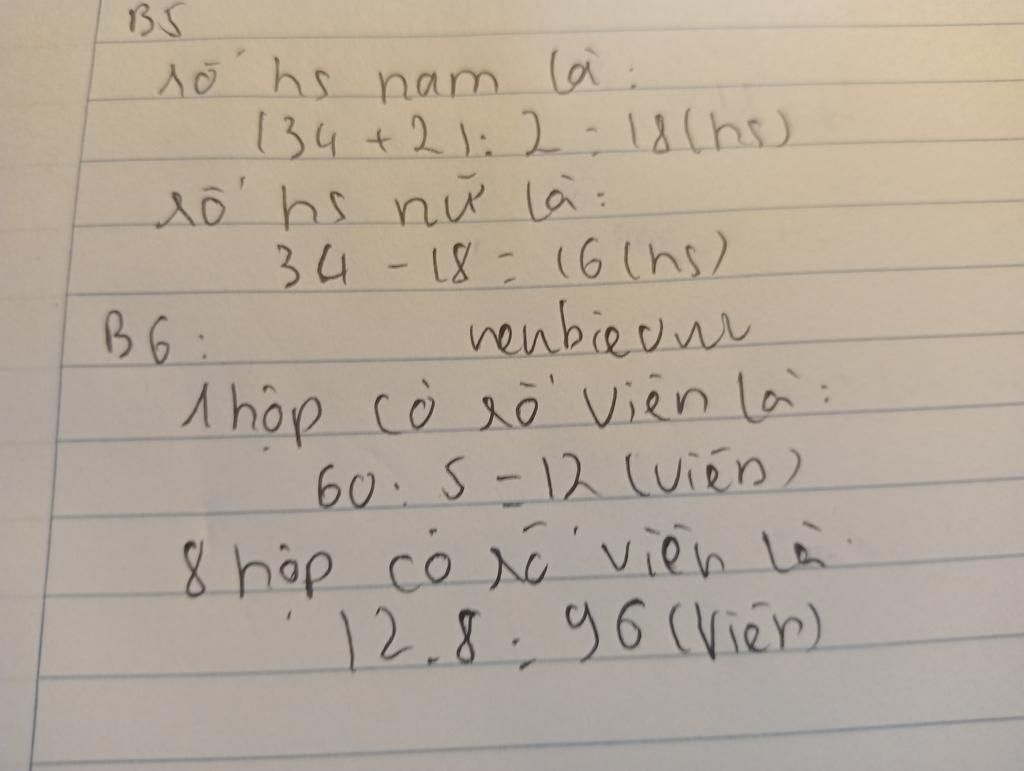 B5
số hs nam là:
(34 + 2) : 2 = 18 (hs)
số hs nữ là:
34 - 18 = 16 (hs)
B6:
1 hộp có số viên là:
60 : 5 = 12 (viên)
8 hộp có số viên là
12 . 8 = 96 (viên)